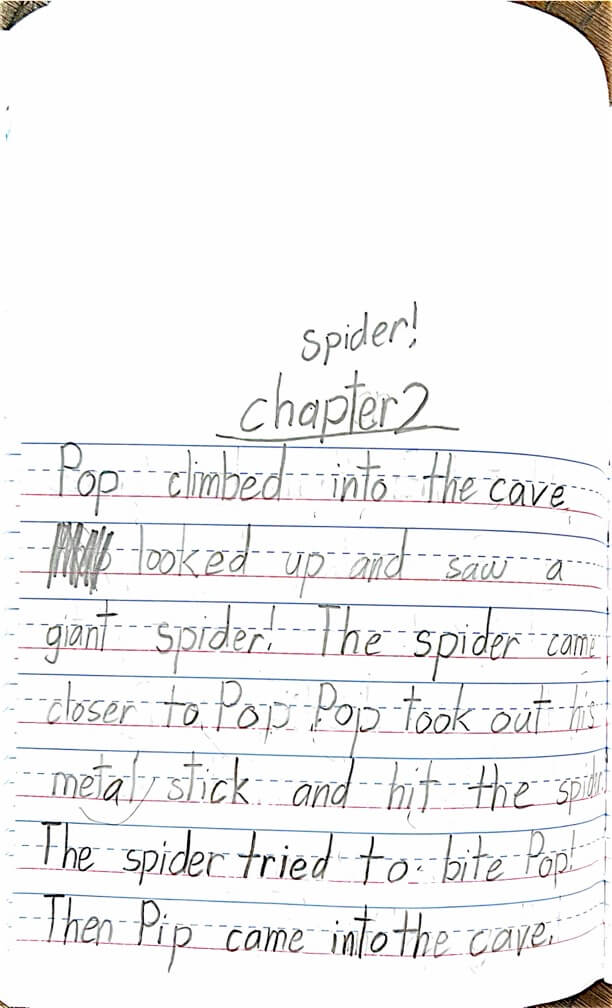 spider!
chapter 2
Pop climbed into the cave
looked up and saw a
giant spider! The spider came
closer to Pop. Pop took out his
metal stick and hit the
The spider tried to bite Pop!
Then Pip came into the cave.